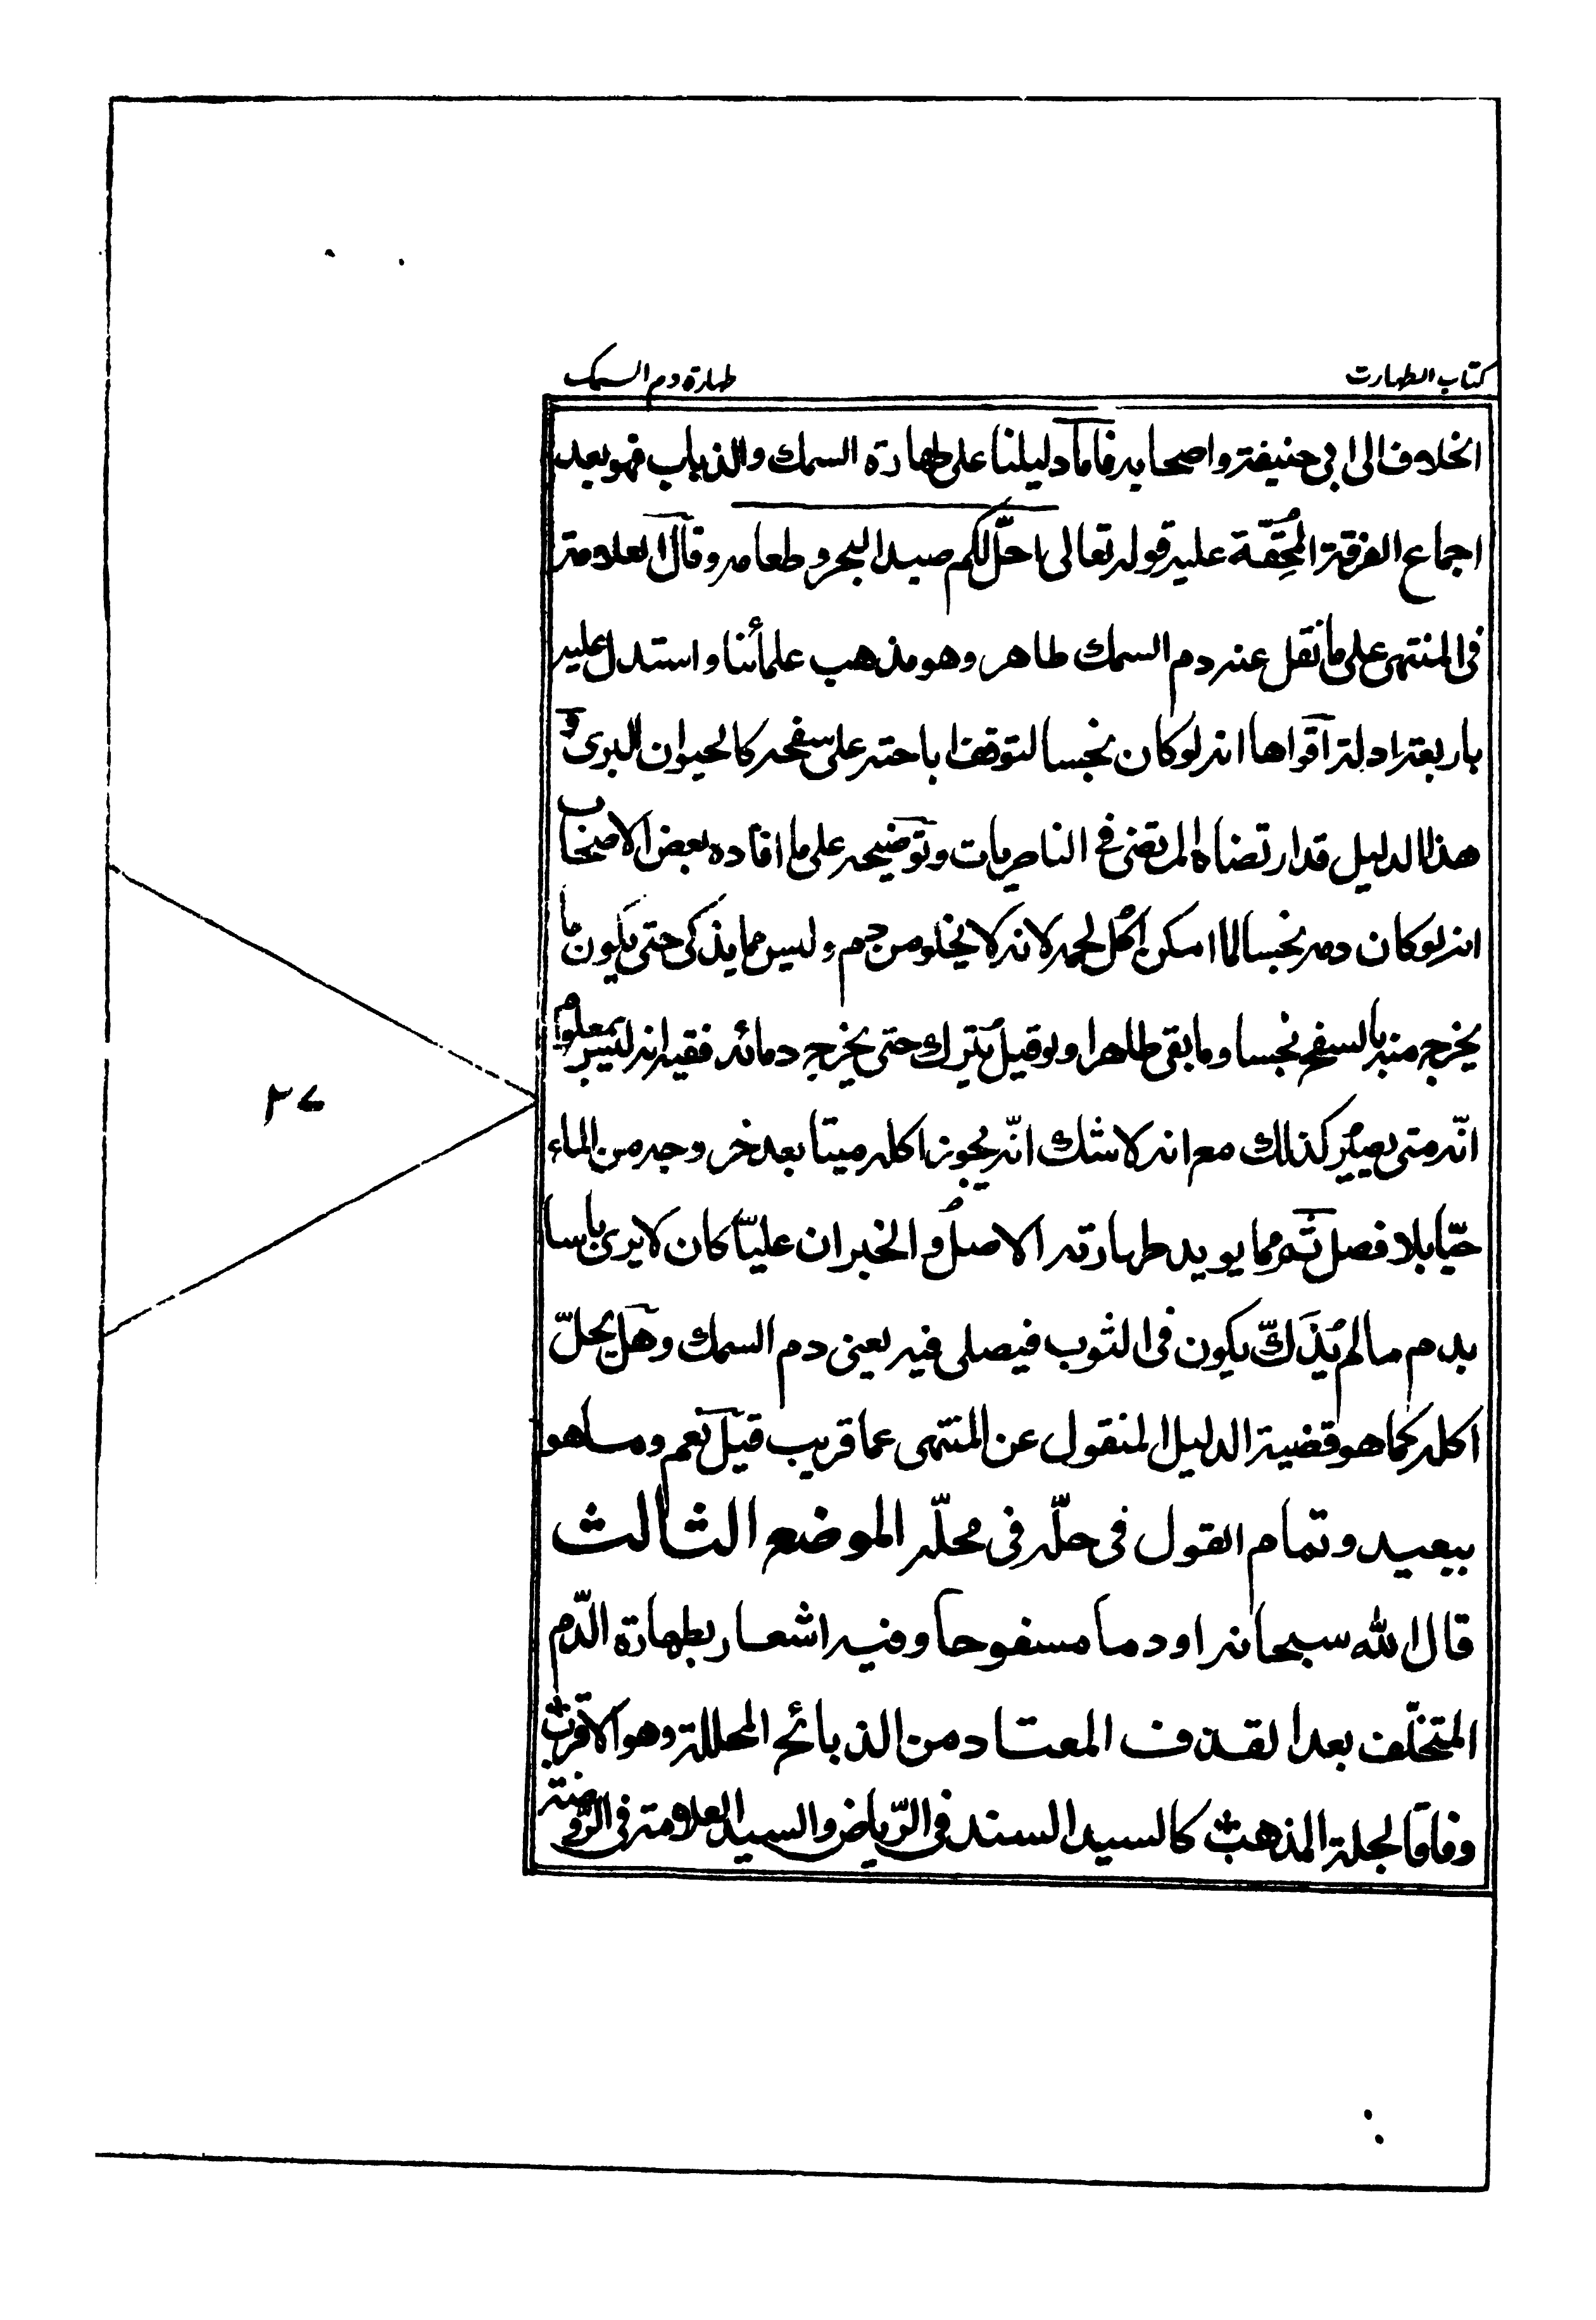 كتاب الطهارت
طهارة دم السمك
الخلاف الى ابى حنيفة واصحابه فاما دليلنا على طهارة السمك والذباب فهو بعد
اجماع الفرقة المُحِقّة عليه قوله تعالى احلّ لكم صيد البحر وطعامه وقال العلامة
فى المنتهى على ما نقل عنه دم السمك طاهر وهو مذهب علمائنا واستدل عليه
باربعة ادلة اقواها انه لو كان نجسا لتوقف اباحته على سفحه كالحيوان البرى و
هذا الدليل قد ارتضاه المرتضى فى الناصريات وتوضيحه على ما افاده بعض الاصحاب
انه لو كان دمه نجسا لما امكن اكل لحمه لانه لا يخلو من دم وليس مما يذكى حتى يكون ما
يخرج منه بالسفح نجسا وما بقى طاهرا ولو قيل يترك حتى يخرج دمائه ففيه انه ليس بمعلوم
انّه متى يصير كذلك مع انه لا شك انّه يجوز اكله ميتا بعد خروجه من الماء
حيّا بلا فصل ثم مما يويد طهارته الاصل و الخبر ان عليّا كان لا يرى باسا
بدم ما لم يُذَكّ يكون فى الثوب فيصلى فيه يعنى دم السمك وهل يحلّ
اكله كما هو قضية الدليل المنقول عن المنتهى عما قريب قيل نعم وما هو
ببعيد وتمام القول فى حلّه فى محلّه الموضع الثالث
قال الله سبحانه او دما مسفوحا وفيه اشعار بطهارة الدّم
المتخلّف بعد القذف المعتاد من الذبائح المحللة وهو الاقرب
وفاقا لجلة المذهب كالسيد السند فى الرّياض والسيد العلامة فى الرّوضة
٢٧